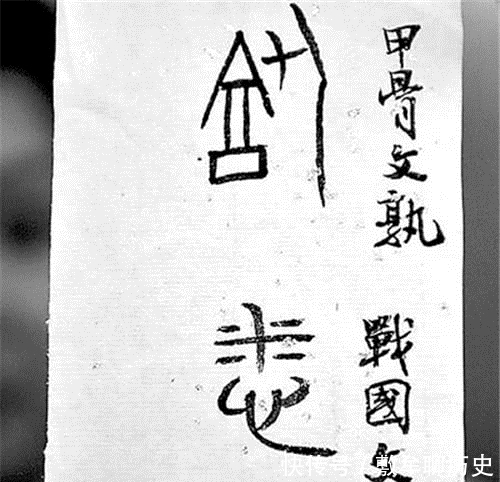 甲骨文孰
戰國文
快传号/勲牟聊历史